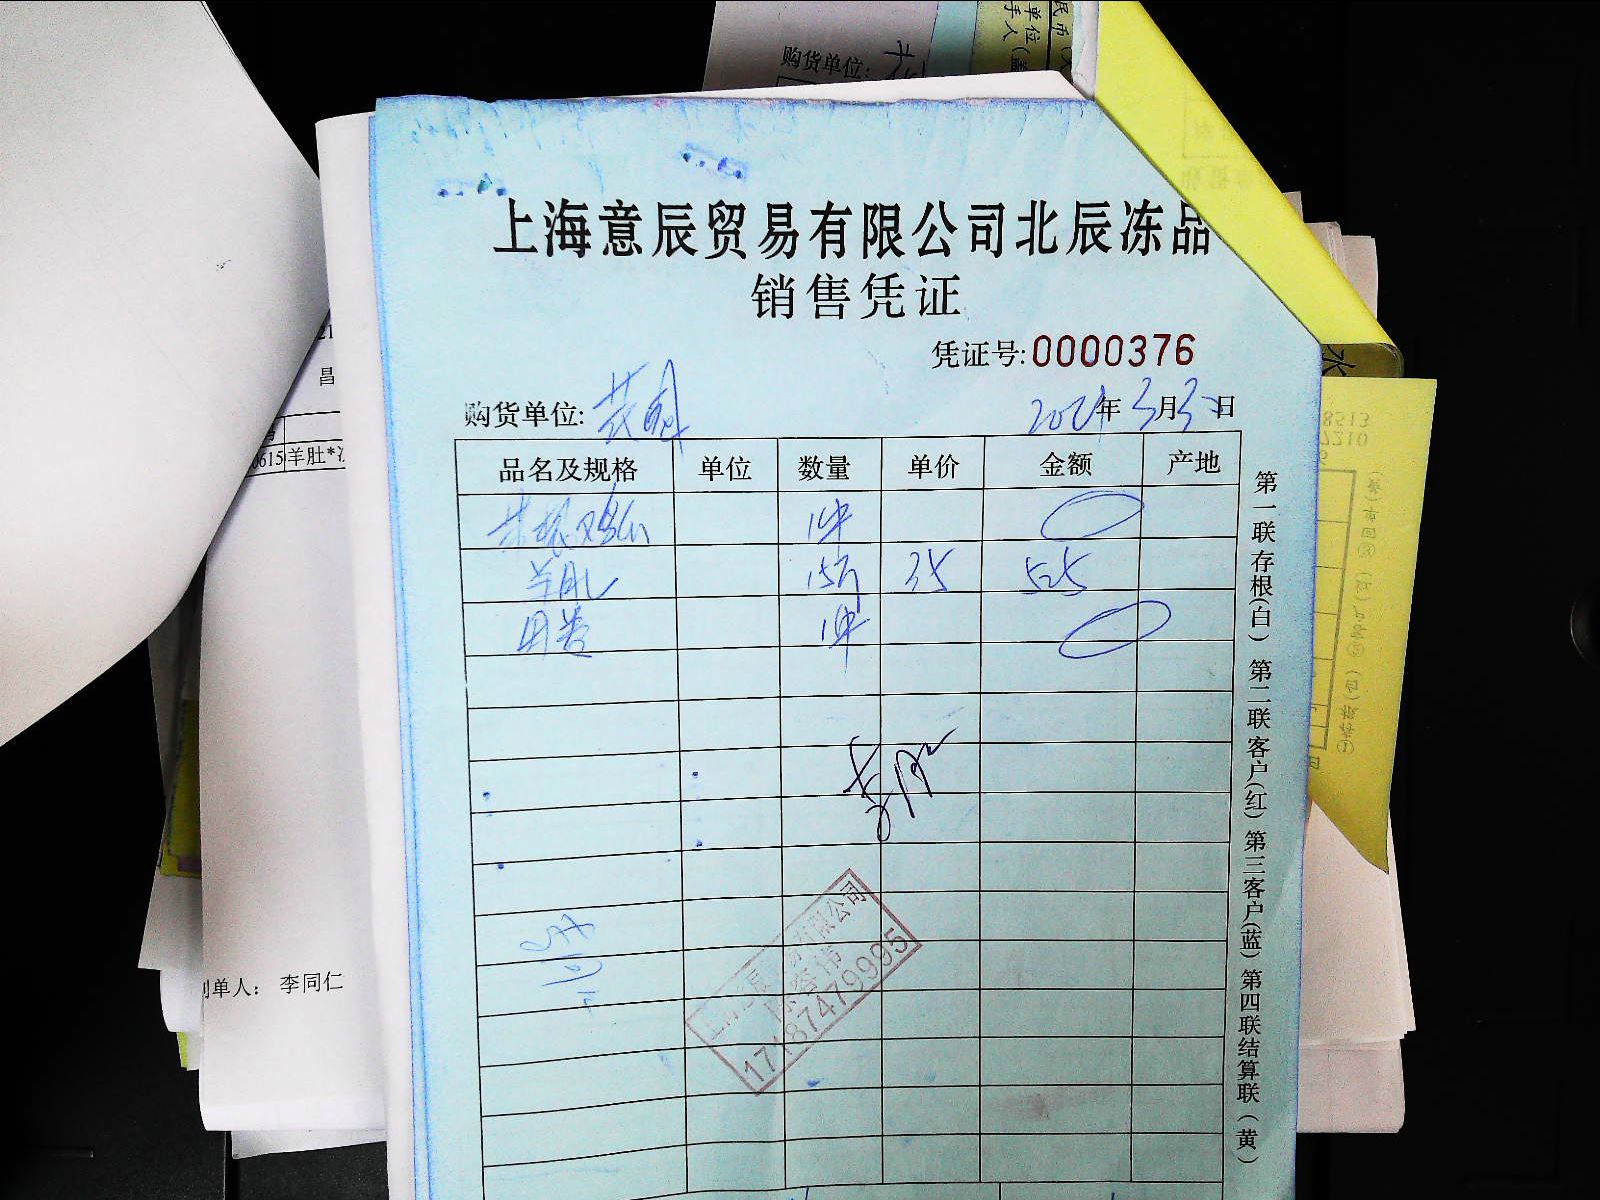 购货单位:
民币
单位
手人
上海意辰贸易有限公司北辰冻品
销售凭证
凭证号:0000376
购货单位:
2021年3月3日
品名及规格 单位 数量 单价 金额 产地
1件
羊肚 15斤 35 525
1件
第一联存根(白) 第二联客户(红) 第三客户(蓝) 第四联结算联(黄)
有限公司
17187479995
21
昌
0615 羊肚*
制单人: 李同仁
8513
7210